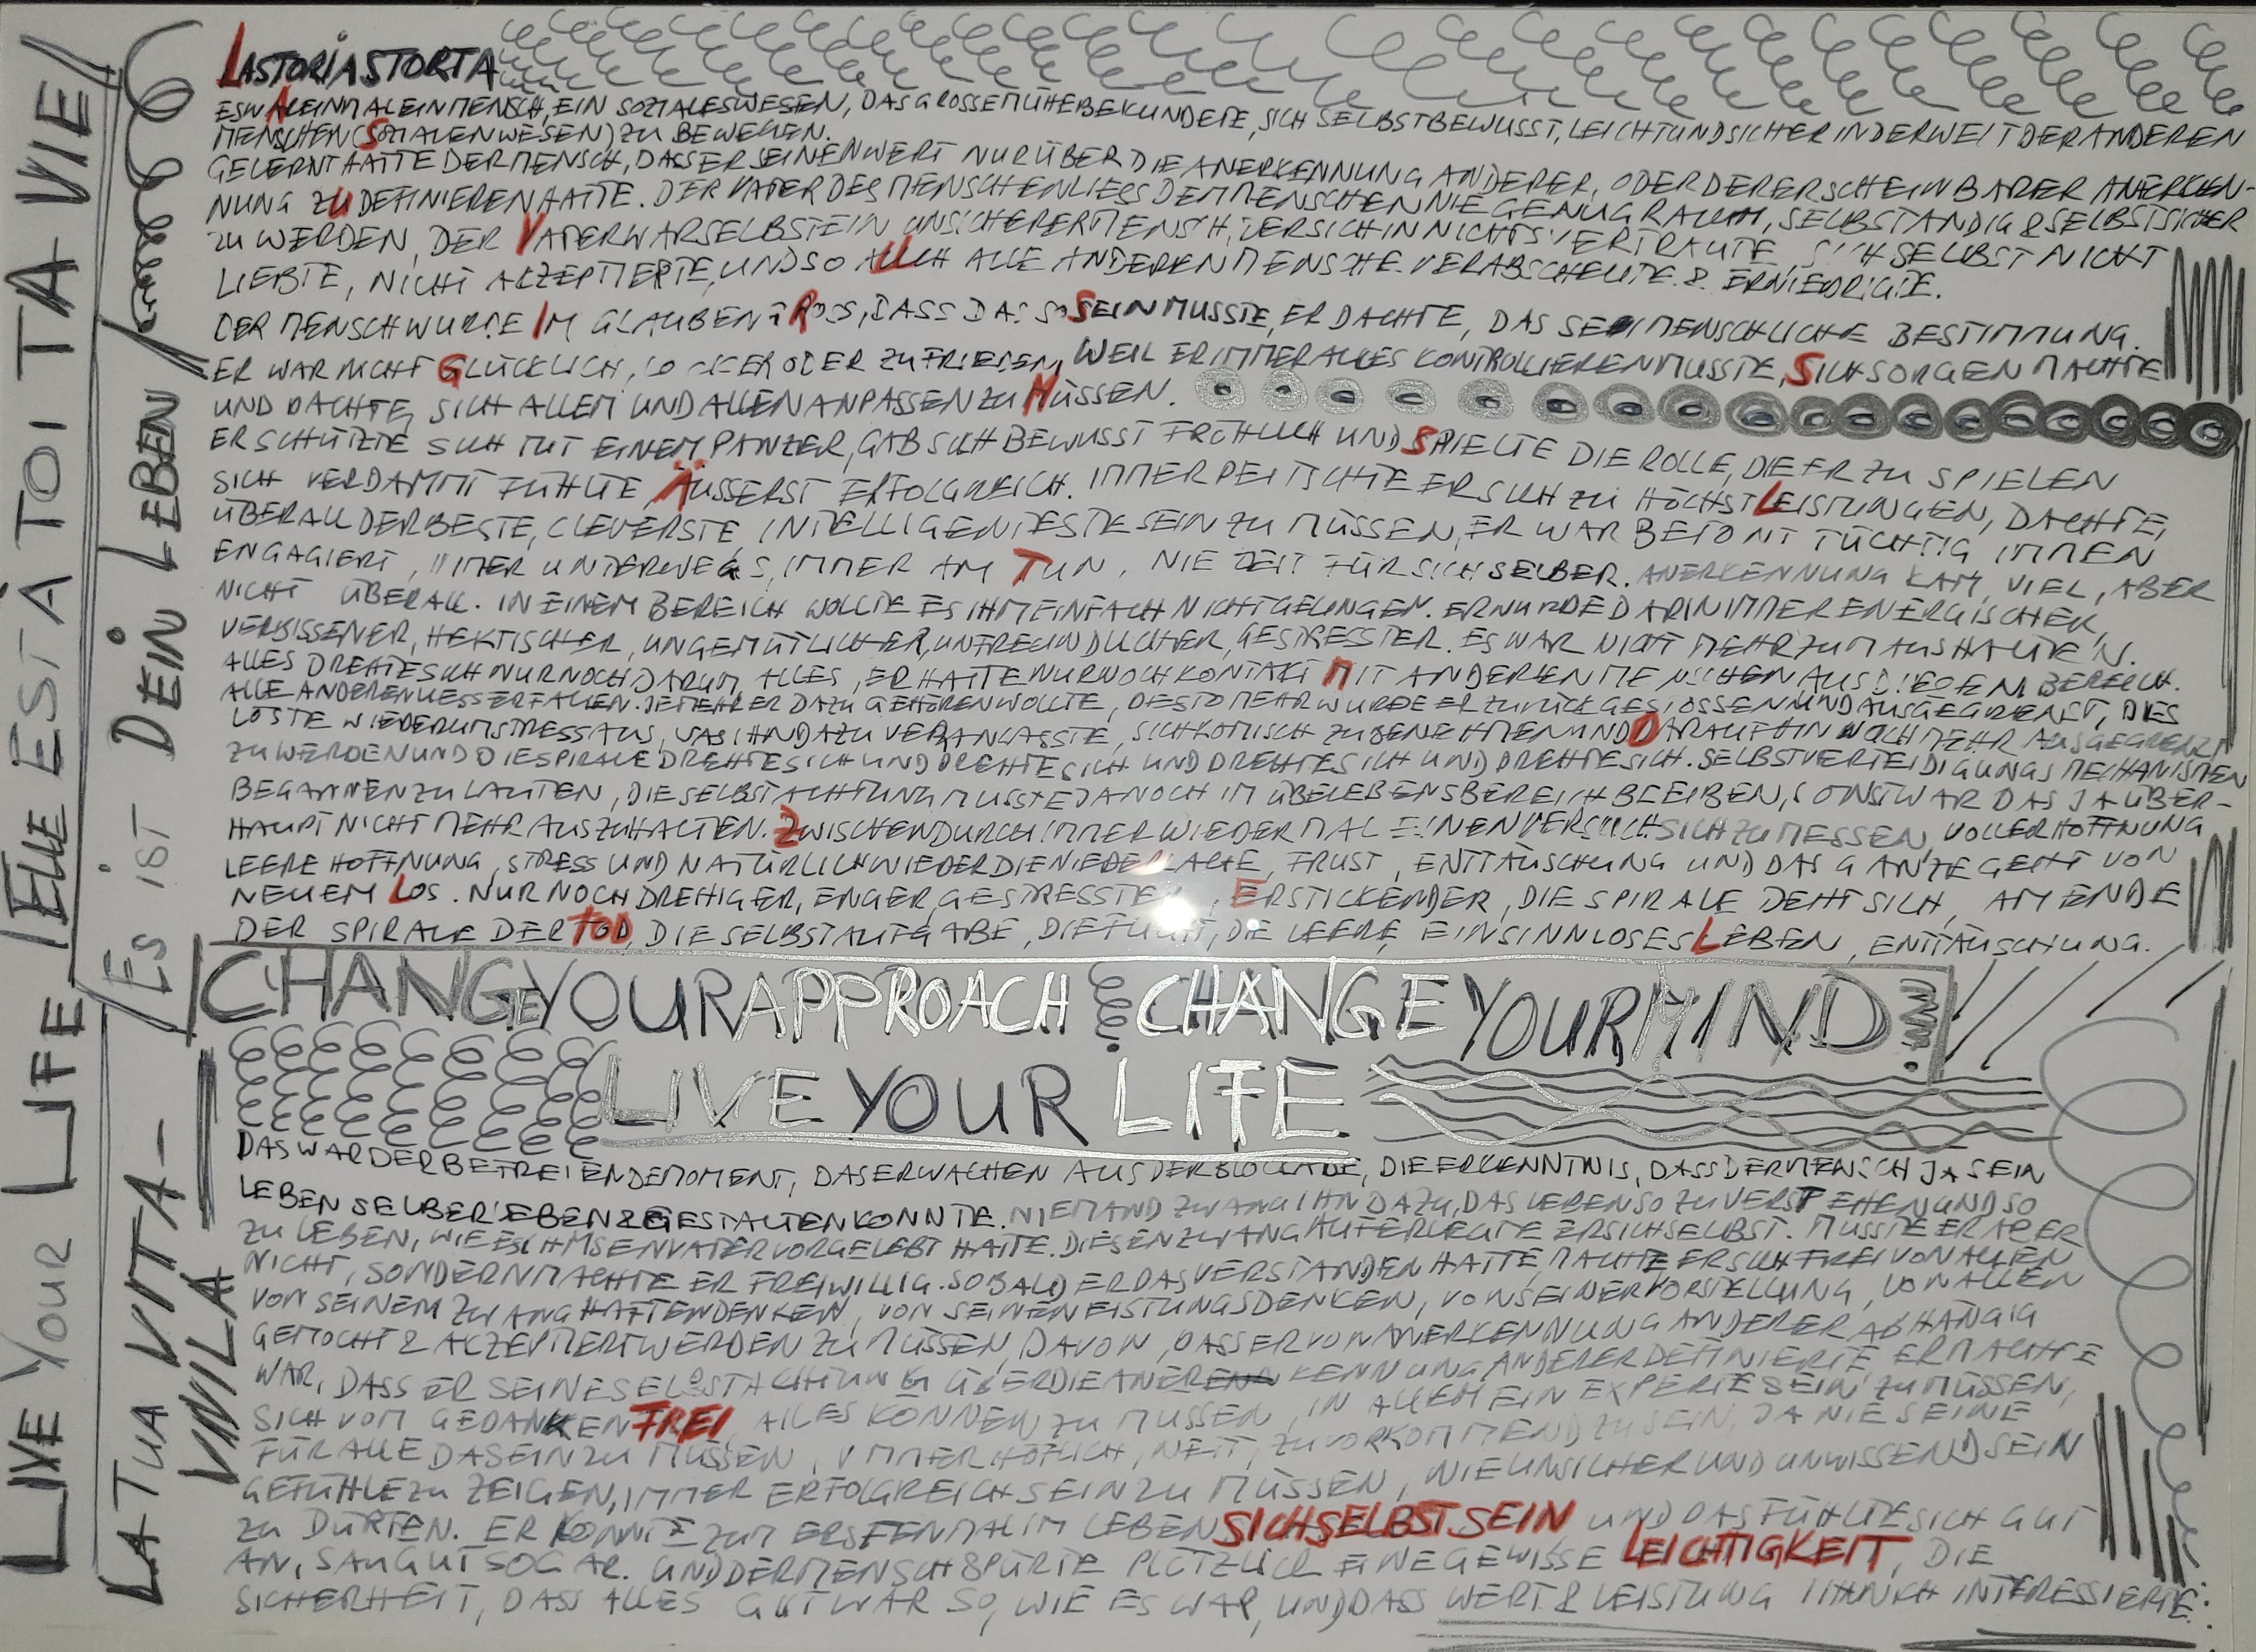 LASTORIASTORTA
ESWAREINMALEINMENSCH, EIN SOZIALESWESEN, DASGROSSEMÜHEBEKUNDETE, SICH SELBSTBEWUSST, LEICHTUNDSICHER INDERWELTDERANDEREN
MENSCHEN (SOZIALENWESEN) ZU BEWEGEN.
GELERNT HATTE DERMENSCH, DASSERSEINENWERT NURÜBER DIEANERKENNUNG ANDERER, ODERDERERSCHEINBARER ANERKEN-
NUNG ZU DEFINIERENHATTE. DER VATER DES MENSCHENLIESS DEMMENSCHENNIEGENUG RAUM, SELBSTÄNDIG & SELBSTSICHER
ZU WERDEN, DER VATERWARSELBSTEIN UNSICHERERMENSCH, DERSICHINNICHTSVERTRAUTE, SICHSELBST NICHT
LIEBTE, NICHT AKZEPTIERTE, UNDSO AUCH ALLE ANDERENMENSCHE VERABSCHEUTE & ERNIEDRIGTE.
DER MENSCHWURDE IM GLAUBEN GROSS, DASS DAS SO SEINMUSSTE, ER DACHTE, DAS SEI MENSCHLICHE BESTIMMUNG.
ER WARNICHT GLÜCKLICH, LOCKER ODER ZUFRIEDEN, WEIL ERIMMERALLES KONTROLLIERENMUSSTE, SICHSORGENMACHTE
UND DACHTE, SICHALLEM UNDALLENANPASSENZU MÜSSEN.
ERSCHÜTZTE SICH MIT EINEM PANZER, GABSICHBEWUSST FRÖHLICH UND SPIELTE DIE ROLLE, DIEERZU SPIELEN
SICH VERDAMMT FÜHLTE ÄUSSERST ERFOLGREICH. IMMERPEITSCHTEERSICH ZU HÖCHSTLEISTUNGEN, DACHTE,
ÜBERALLDERBESTE, CLEVERSTE INTELLIGENTESTESEINZU MÜSSEN, ER WAR BETONT TÜCHTIG IMMER
ENGAGIERT, IMMER UNTERWEGS, IMMER AM TUN, NIE ZEIT FÜRSICHSELBER. ANERKENNUNG KAM, VIEL, ABER
NICHT ÜBERALL. INEINEM BEREICH WOLLTEESIHMEINFACHNICHTGELINGEN. ERWURDEDARINIMMERENERGISCHER,
VERBISSENER, HEKTISCHER, UNGEMÜTLICHER, UNFREUNDLICHER, GESTRESSTER. ESWAR NICHT MEHRZUMAUSHALTEN.
ALLES DREHTESICHNURNOCHDARUM, ALLES, ERHATTENURNOCHKONTAKT MIT ANDERENMENSCHENAUSDIESEMBEREICH.
ALLEANDERENLIESSERFALLEN. JEMEHRER DAZUGEHÖRENWOLLTE, DESTOMEHRWURDEERZURÜCKGESTOSSENUNDAUSGEGRENZT, DIES
LÖSTE WIEDERUMSTRESSAUS, WASIHNDAZUVERANLASSTE, SICHKOMISCH ZUBENEHMENUNDDARAUFHIN NOCHMEHR AUSGEGRENZT
ZUWERDENUNDDIESPIRALEDREHTESICHUNDDREHTESICH UND DREHTESICH UND DREHTESICH. SELBSTVERTEIDIGUNGSMECHANISMEN
BEGANNENZULAUFEN, DIESELBSTACHTUNGMUSSTEJANOCH IM ÜBELEBENSBEREICHBLEIBEN, SONSTWAR DAS JA ÜBER-
HAUPT NICHT MEHR AUSZUHALTEN. ZWISCHENDURCHIMMERWIEDERMAL EINENVERSUCHSICHZUMESSEN, VOLLERHOFFNUNG
LEERE HOFFNUNG, STRESS UND NATÜRLICHWIEDERDIENIEDERLAGE, FRUST, ENTTÄUSCHUNG UND DAS GANZE GEHT VON
NEUEM LOS. NURNOCHDREHIGER, ENGER, GESTRESSTER, ERSTICKENDER, DIE SPIRALE DEHTSICH, AM ENDE
DER SPIRALE DER TOD, DIESELBSTAUFGABE, DIEFLUCHT, DIE LEERE, EINSINNLOSESLEBEN, ENTTÄUSCHUNG.
CHANGEYOURAPPROACH & CHANGEYOURMIND!
LIVE YOUR LIFE
DASWARDERBEFREIENDEMOMENT, DASERWACHEN AUSDERBLOCKADE, DIEERKENNTNIS, DASSDERMENSCH JASEIN
LEBENSELBERLEBEN&GESTALTENKONNTE. NIEMANDZWANGIHNDAZU, DASLEBENSOZUVERSTEHENUNDSO
ZULEBEN, WIEESIHMSEINVATERVORGELEBT HATTE. DIESENZWANGAUFERLEGTE ERSICHSELBST. MUSSTEERABER
NICHT, SONDERNMACHTE ER FREIWILLIG. SOBALD ERDASVERSTANDENHATTE, MACHTEERSICHFREIVONALLEN
VONSEINEM ZWANGHAFTENDENKEN, VON SEINENLEISTUNGSDENKEN, VONSEINERVORSTELLUNG, VONALLEN
GEMOCHT & AKZEPTIERTWERDEN ZU MÜSSEN, DAVON, DASSERVONANERKENNUNGANDERERABHÄNGIG
WAR, DASS ERSEINESELBSTACHTUNG ÜBERDIEANERKENNUNGANDERERDEFINIERTE ERMACHTE
SICH VOM GEDANKENFREI, ALLES KÖNNENZU MÜSSEN, IN ALLEMEIN EXPERTESEIN ZUMÜSSEN,
FÜRALLEDASEINZU MÜSSEN, IMMERHÖFLICH, NETT, ZUVORKOMMENDZUSEIN, JA NIE SEINE
GEFÜHLEZU ZEIGEN, IMMER ERFOLGREICHSEINZU MÜSSEN, NIEUNSICHERUNDUNWISSENDSEIN
ZU DÜRFEN. ER KONNTE ZUM ERSTENMALIM LEBEN SICHSELBSTSEIN UNDDASFÜHLTESICH GUT
AN, SAUGUTSOGAR. UNDDERMENSCHSPÜRTE PLÖTZLICH EINEGEWISSE LEICHTIGKEIT, DIE
SICHERHEIT, DASS ALLES GUTWAR SO, WIE ES WAR, UNDDASS WERT & LEISTUNG IHNNICHT INTERESSIERTE.
LIVE YOUR LIFE / ELLE EST À TOI TA VIE /
LA TUA VITA - VIVILA / ES IST DEIN LEBEN /